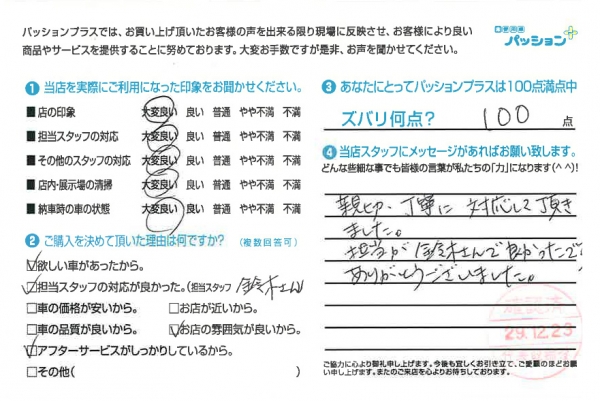 パッションプラスでは、お買い上げ頂いたお客様の声を出来る限り現場に反映させ、お客様により良い
商品やサービスを提供することに努めております。大変お手数ですが是非、お声を聞かせてください。
パッション
1 当店を実際にご利用になった印象をお聞かせください。
■店の印象 大変良い 良い 普通 やや不満 不満
■担当スタッフの対応 大変良い 良い 普通 やや不満 不満
■その他のスタッフの対応 大変良い 良い 普通 やや不満 不満
■店内・展示場の清掃 大変良い 良い 普通 やや不満 不満
■納車時の車の状態 大変良い 良い 普通 やや不満 不満
2 ご購入を決めて頂いた理由は何ですか? (複数回答可)
☑欲しい車があったから。
☑担当スタッフの対応が良かった。(担当スタッフ 鈴木さん)
□車の価格が安いから。 □お店が近いから。
□車の品質が良いから。 ☑お店の雰囲気が良いから。
☑アフターサービスがしっかりしているから。
□その他( )
3 あなたにとってパッションプラスは100点満点中
ズバリ何点? 100 点
4 当店スタッフにメッセージがあればお願い致します。
どんな些細な事でも皆様の言葉が私たちの「力」になります(^ ^)!
親切、丁寧に対応して頂き
ました。
担当が鈴木さんで良かったで
ありがとうございました。
29.12.23
ご協力に心より御礼申し上げます。今後も宜しくお引き立て、ご愛顧のほどお願
い申し上げます。またのご来店を心よりお待ちしております。